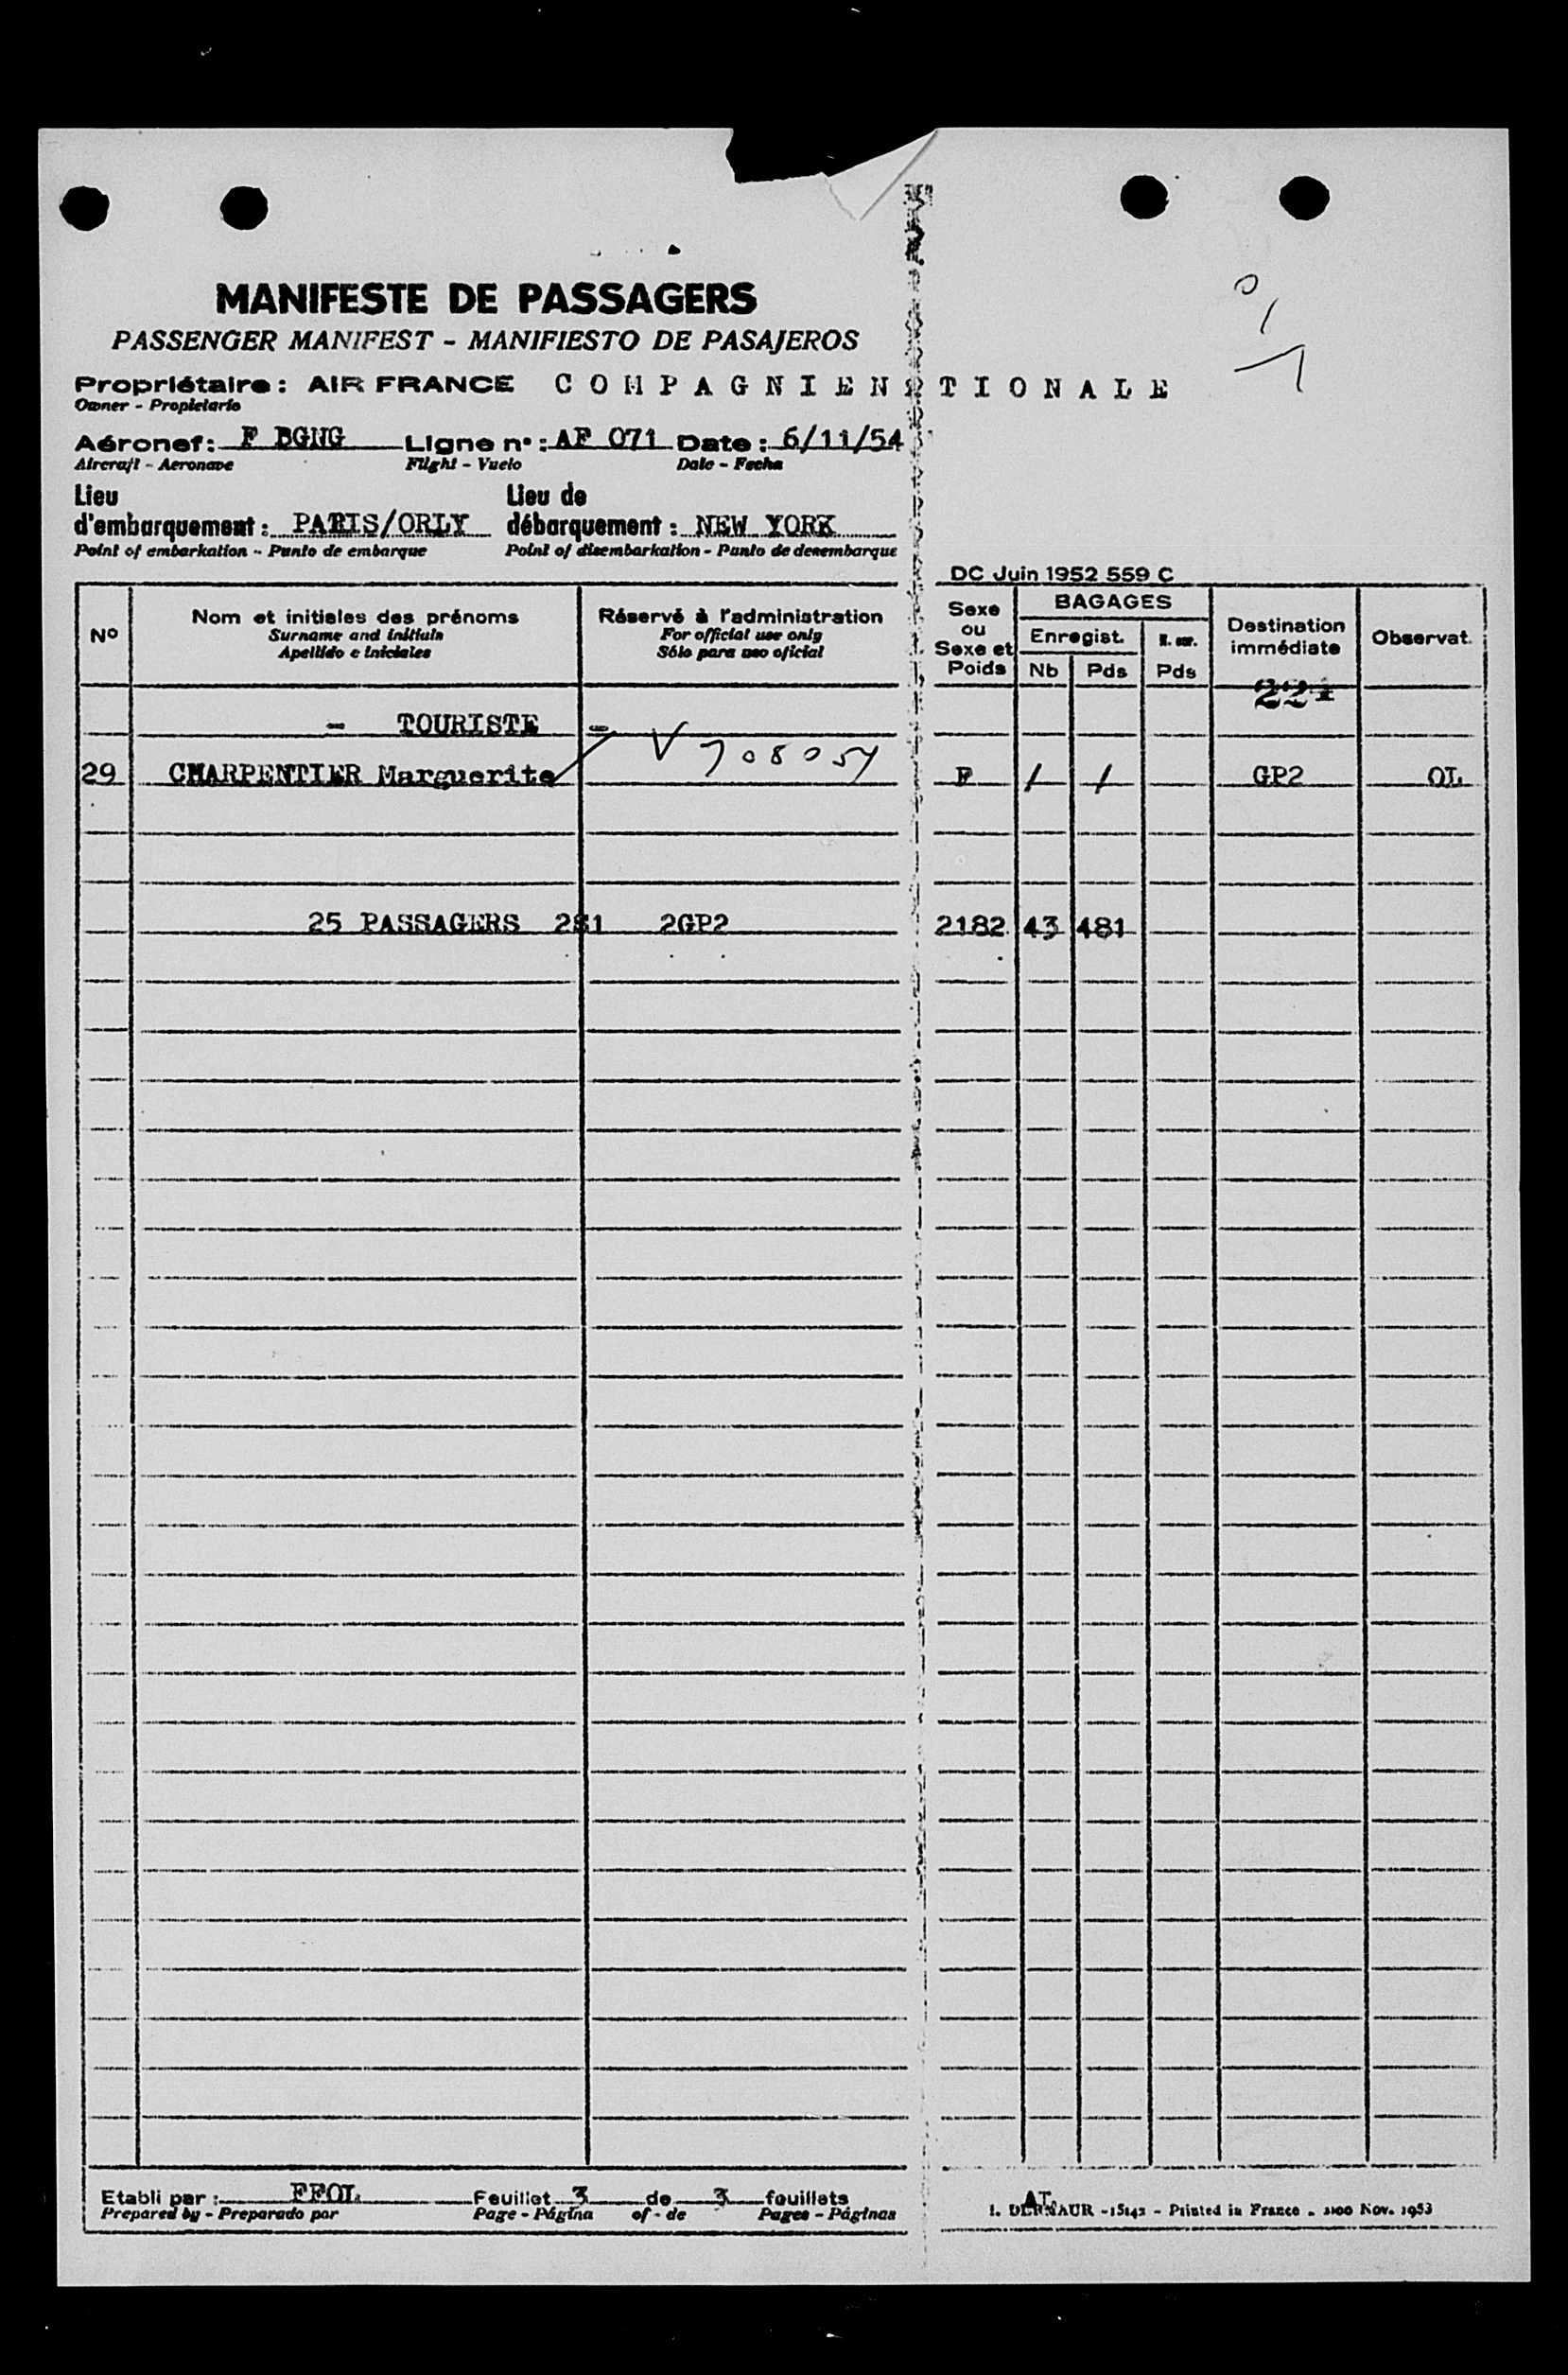 MANIFESTE DE PASSAGERS
PASSENGER MANIFEST - MANIFIESTO DE PASAJEROS
Propriétaire : AIR FRANCE COMPAGNIE NATIONALE
Owner - Propietario
Aéronef : F BGNG Ligne n° : AF 071 Date : 6/11/54
Aircraft - Aeronave Flight - Vuelo Date - Fecha
Lieu d'embarquement : PARIS/ORLY Lieu de débarquement : NEW YORK
Point of embarkation - Punto de embarque Point of disembarkation - Punto de desembarque
DC Juin 1952 559 C
N° Nom et initiales des prénoms Réservé à l'administration Sexe ou Sexe et Poids BAGAGES Destination immédiate Observat.
Surname and initials For official use only Enregist.
Apellido e iniciales Sólo para uso oficial Nb Pds Pds
221
- TOURISTE -
29 CHARPENTIER Marguerite V 708054 F / / GP2 OL
25 PASSAGERS 2S1 2GP2 2182 43 481
Etabli par : FFOL Feuillet 3 de 3 feuillets
Prepared by - Preparado por Page - Página of - de Pages - Páginas
AT
I. DERMAUR - 15142 - Printed in France - Nov. 1953